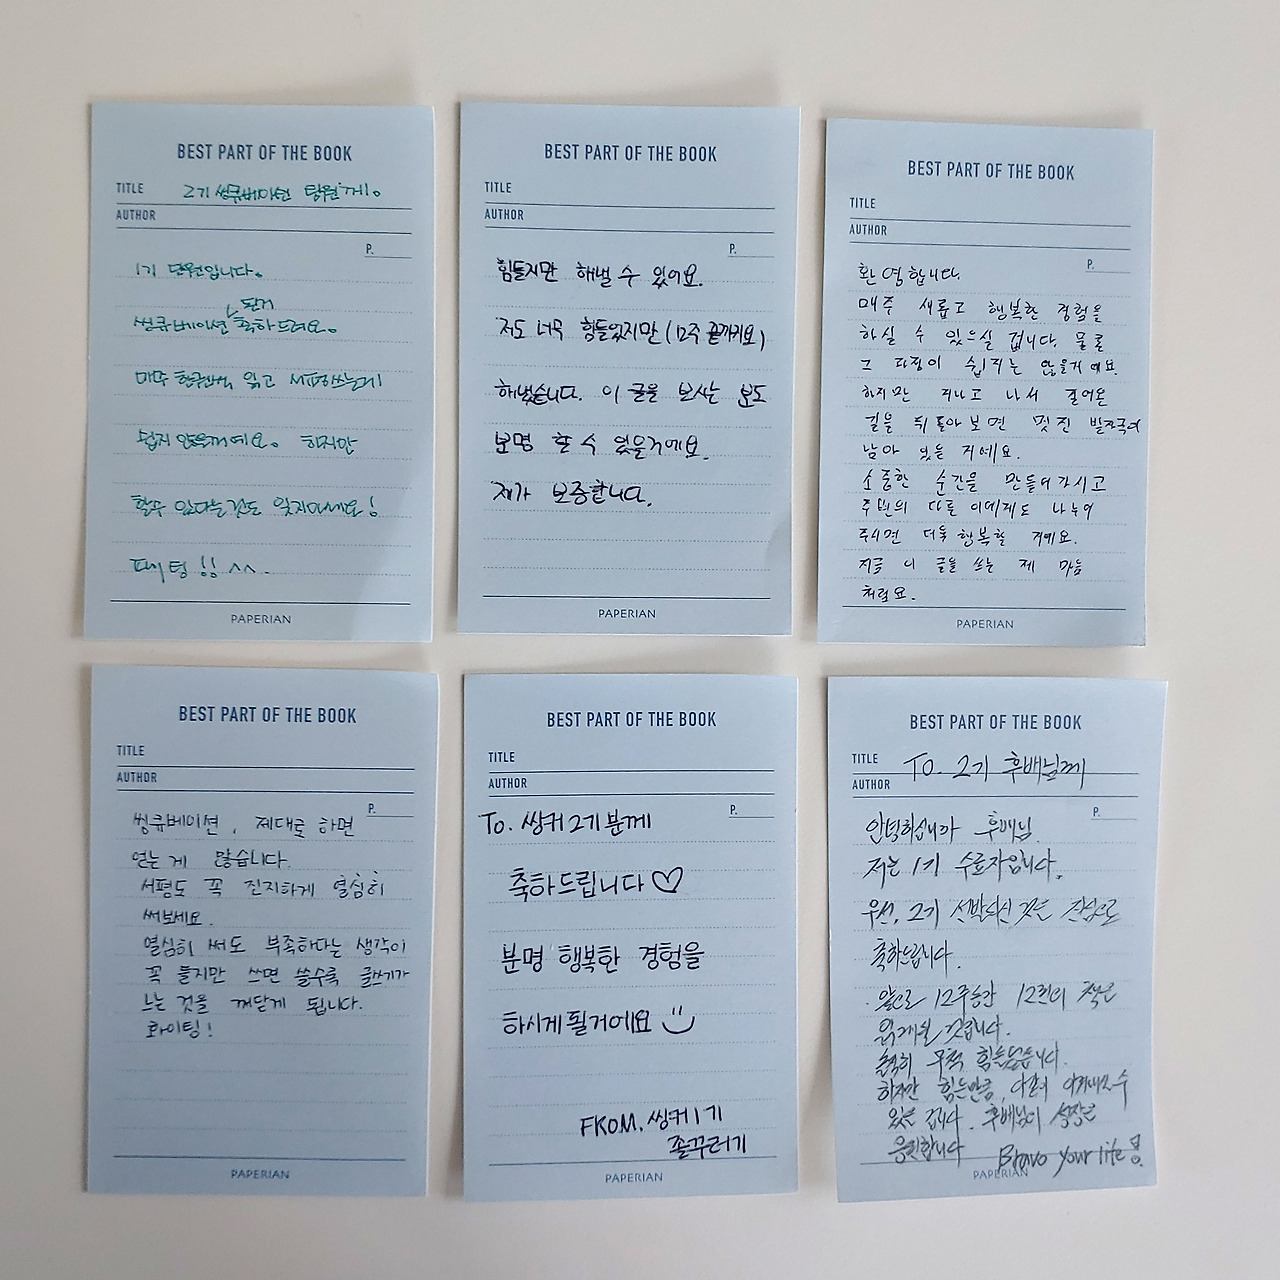 BEST PART OF THE BOOK
TITLE 2기 씽큐베이션 팀원께.
AUTHOR
P.
1기 단원입니다.
된거
씽큐베이션 축하드려요.
매주 한권씩 읽고 서평쓰는게
쉽지 않을거예요. 하지만
할수 있다는것도 잊지마세요!
파이팅!! ^^.
PAPERIAN
BEST PART OF THE BOOK
TITLE
AUTHOR
P.
힘들지만 해낼 수 있어요.
저도 너무 힘들었지만 (12주 끝까지요)
해냈습니다. 이 글을 보시는 분도
분명 할 수 있을거에요.
제가 보증합니다.
PAPERIAN
BEST PART OF THE BOOK
TITLE
AUTHOR
P.
환영합니다.
매주 새롭고 행복한 경험을
하실 수 있으실 겁니다. 물론
그 과정이 쉽지는 않을거예요.
하지만 지나고 나서 걸어온
길을 뒤돌아보면 멋진 발자국이
남아 있을 거예요.
소중한 순간을 만들어가시고
주변의 다른 이에게도 나누어
주시면 더욱 행복할 거예요.
지금 이 글을 쓰는 제 마음
처럼요.
PAPERIAN
BEST PART OF THE BOOK
TITLE
AUTHOR
P.
씽큐베이션, 제대로 하면
얻는게 많습니다.
서평도 꼭 진지하게 열심히
써보세요.
열심히 써도 부족하다는 생각이
꼭 들지만 쓰면 쓸수록 글쓰기가
느는 것을 깨닫게 됩니다.
화이팅!
PAPERIAN
BEST PART OF THE BOOK
TITLE
AUTHOR
P.
To. 씽커2기분께
축하드립니다♡
분명 행복한 경험을
하시게될거에요
FROM. 씽커1기
졸꾸러기
PAPERIAN
BEST PART OF THE BOOK
TITLE TO. 2기 후배님께
AUTHOR
P.
안녕하십니까 후배님.
저는 1기 수료자입니다.
우선, 2기 선발되신 것을 진심으로
축하드립니다.
앞으로 12주동안 12권의 책을
읽게될 것입니다.
솔직히 무척 힘든
하지만 힘든만큼, 수
있을 겁니다. 후배님의 성장을
응원합니다 Bravo your life!
PAPERIAN